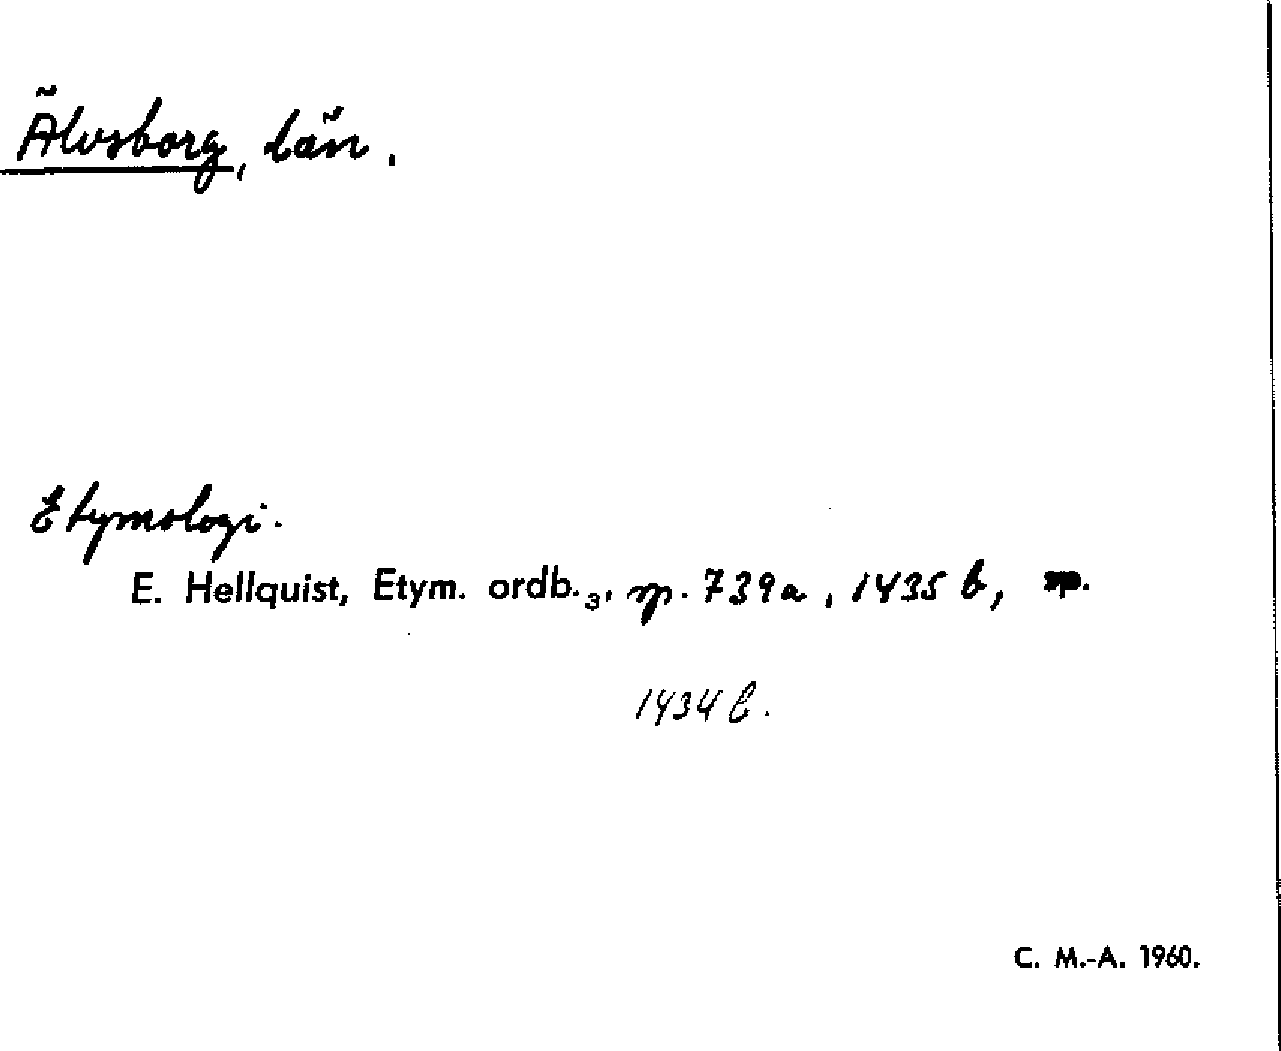 Älvsborg, län.
Etymologi.
E. Hellquist, Etym. ordb.₃, sp. 739a, 1435 b, sp.
1434 b.
C. M.-A. 1960.